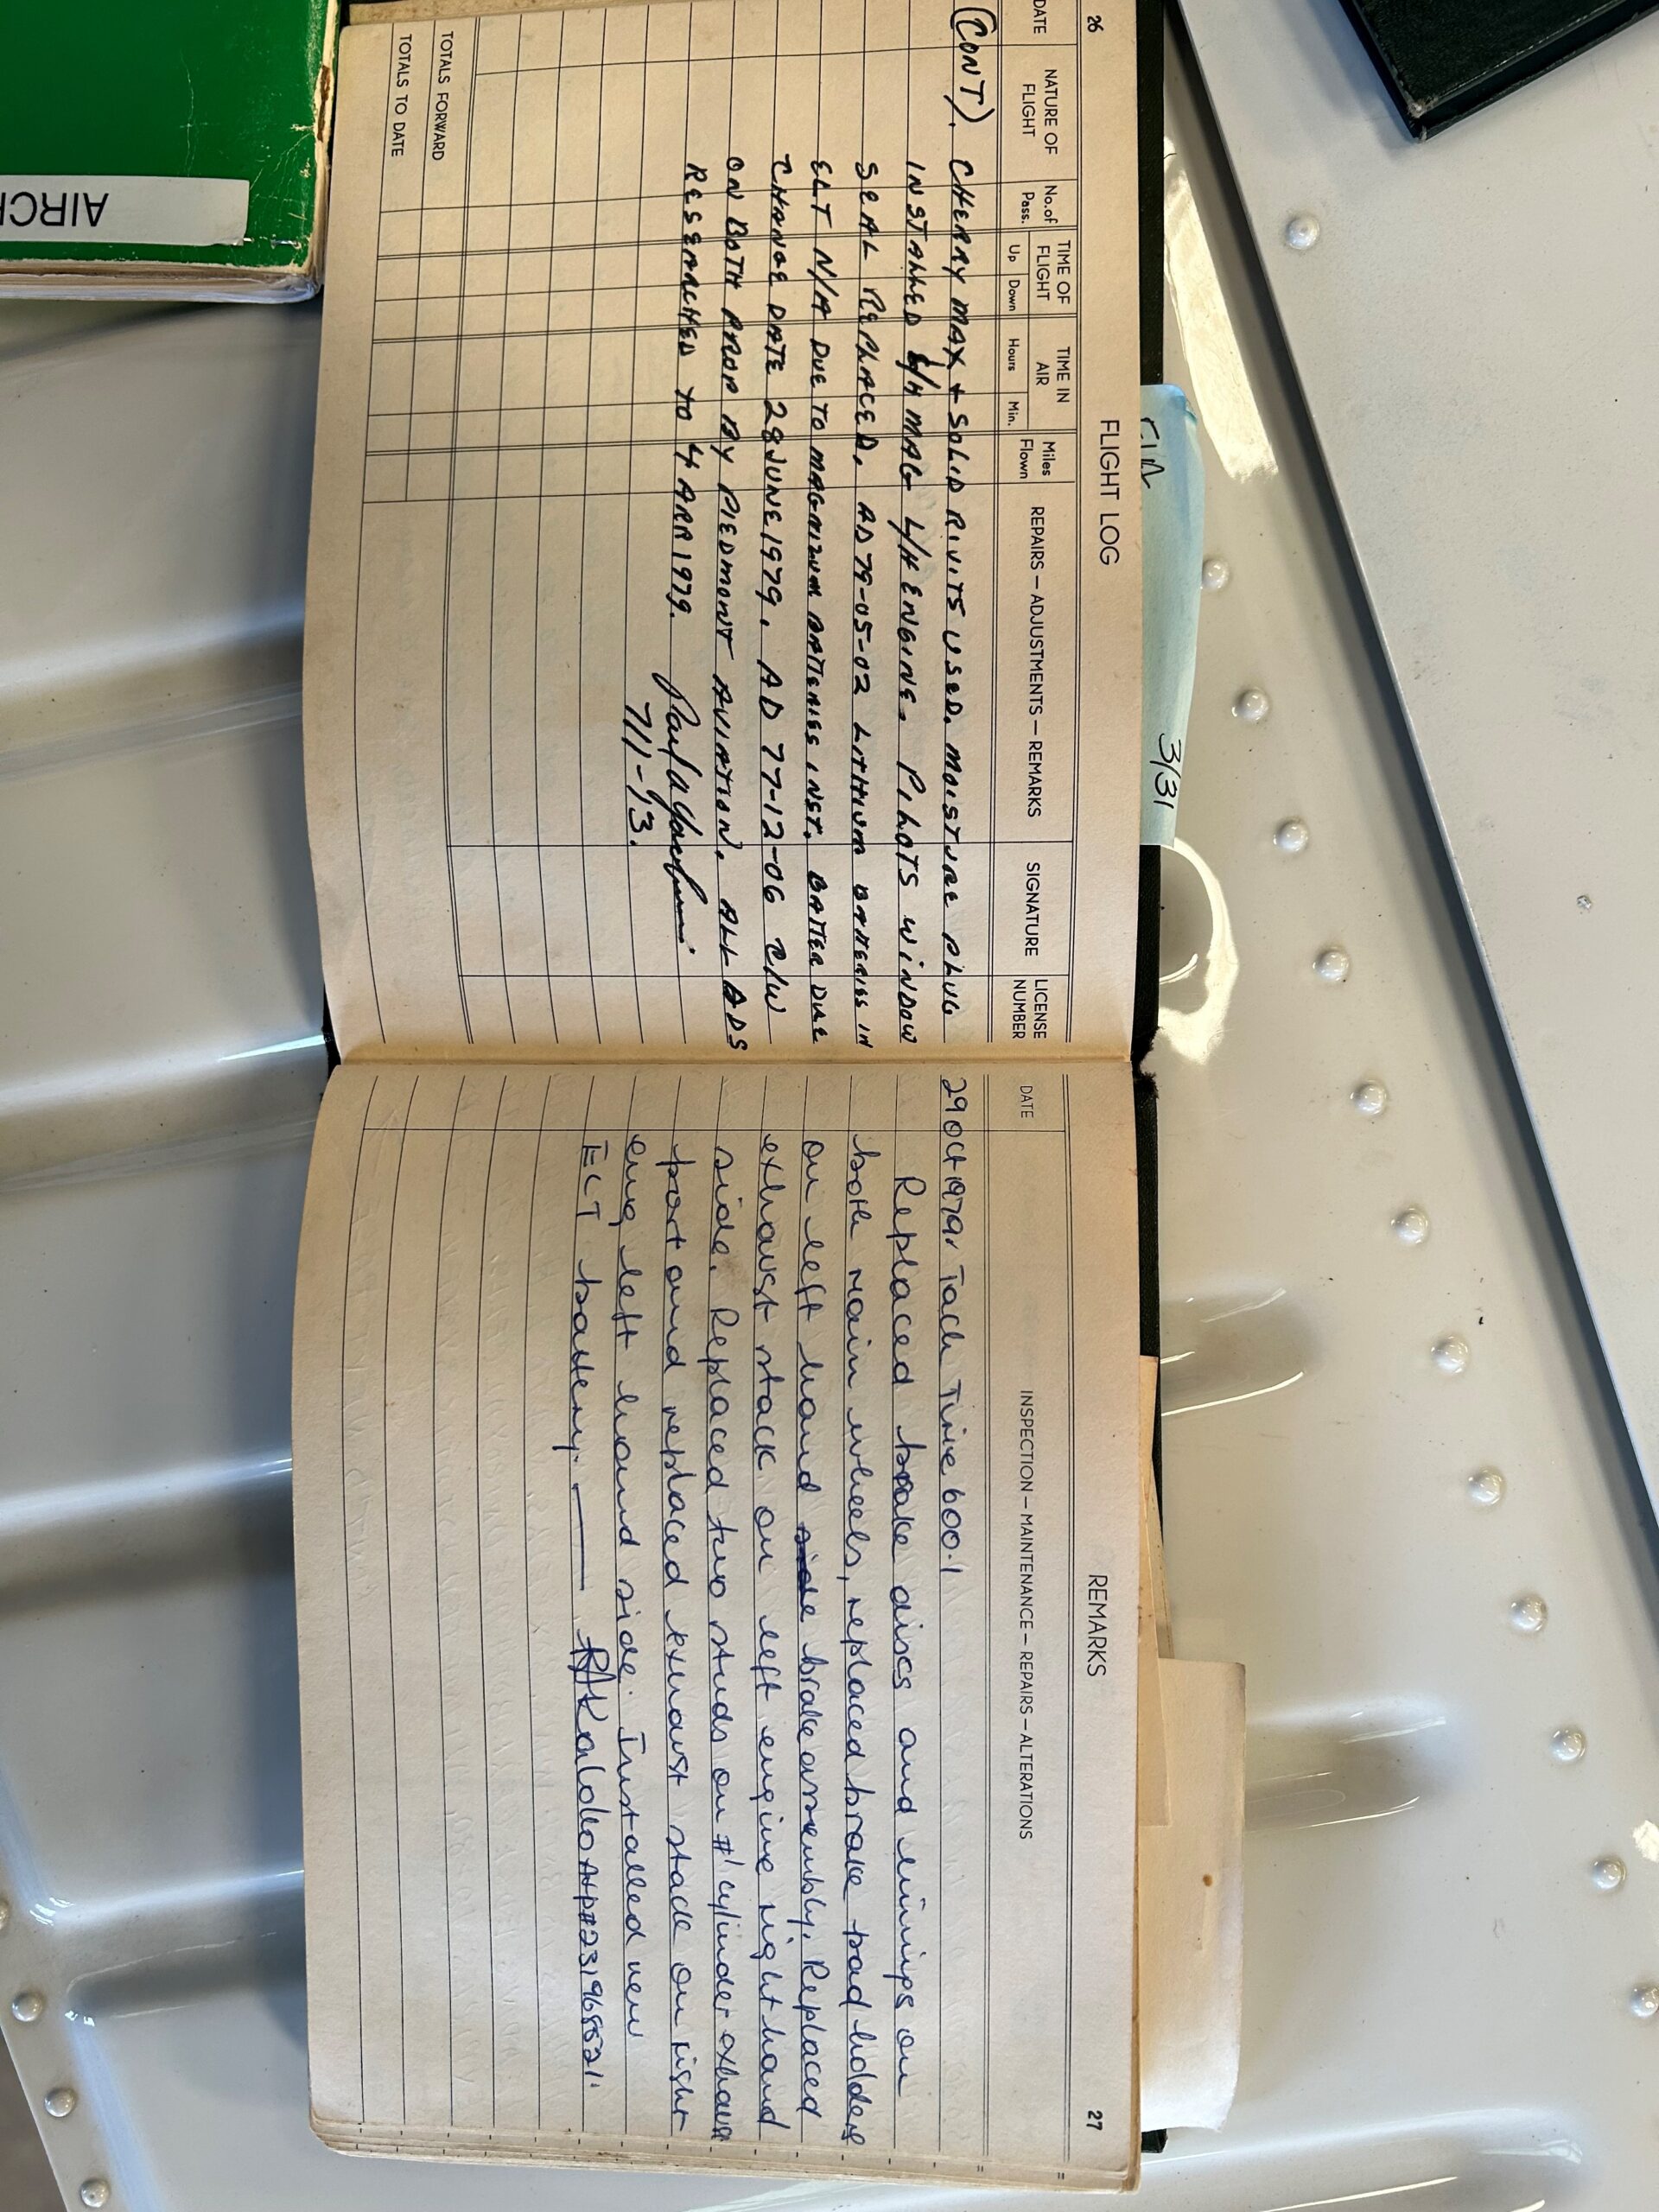 26
FLIGHT LOG
DATE
NATURE OF FLIGHT
No. of Pass.
TIME OF FLIGHT
Up Down
TIME IN AIR
Hours Min.
Miles Flown
REPAIRS — ADJUSTMENTS — REMARKS
SIGNATURE
LICENSE NUMBER
(CONT). CHERRY MAX + SOLID RIVITS USED. MOISTURE PLUG
INSTALLED L/H MAG L/H ENGINE. PILOTS WINDOW
SEAL REPLACED. AD 79-05-02 LITHIUM BATTERIES IN
ELT N/A DUE TO MAGNIZUM BATTERIES INST. BATTER DUE
CHANGE DATE 28 JUNE 1979. AD 77-12-06 C/W
ON BOTH PROP BY PIEDMONT AVIATION. ALL ADS
RESEARCHED TO 4 APR 1979.
711-13.
TOTALS FORWARD
TOTALS TO DATE
REMARKS
27
DATE
INSPECTION — MAINTENANCE — REPAIRS — ALTERATIONS
29 Oct 1979. Tach Time 600.1
Replaced brake discs and linings on
both main wheels, replaced brake pad holders
on left hand side brake assembly. Replaced
exhaust stack on left engine right hand
side. Replaced two studs on #1 cylinder exhaust
port and replaced exhaust stack on right
eng left hand side. Installed new
ELT battery.
AIRCR
3/31